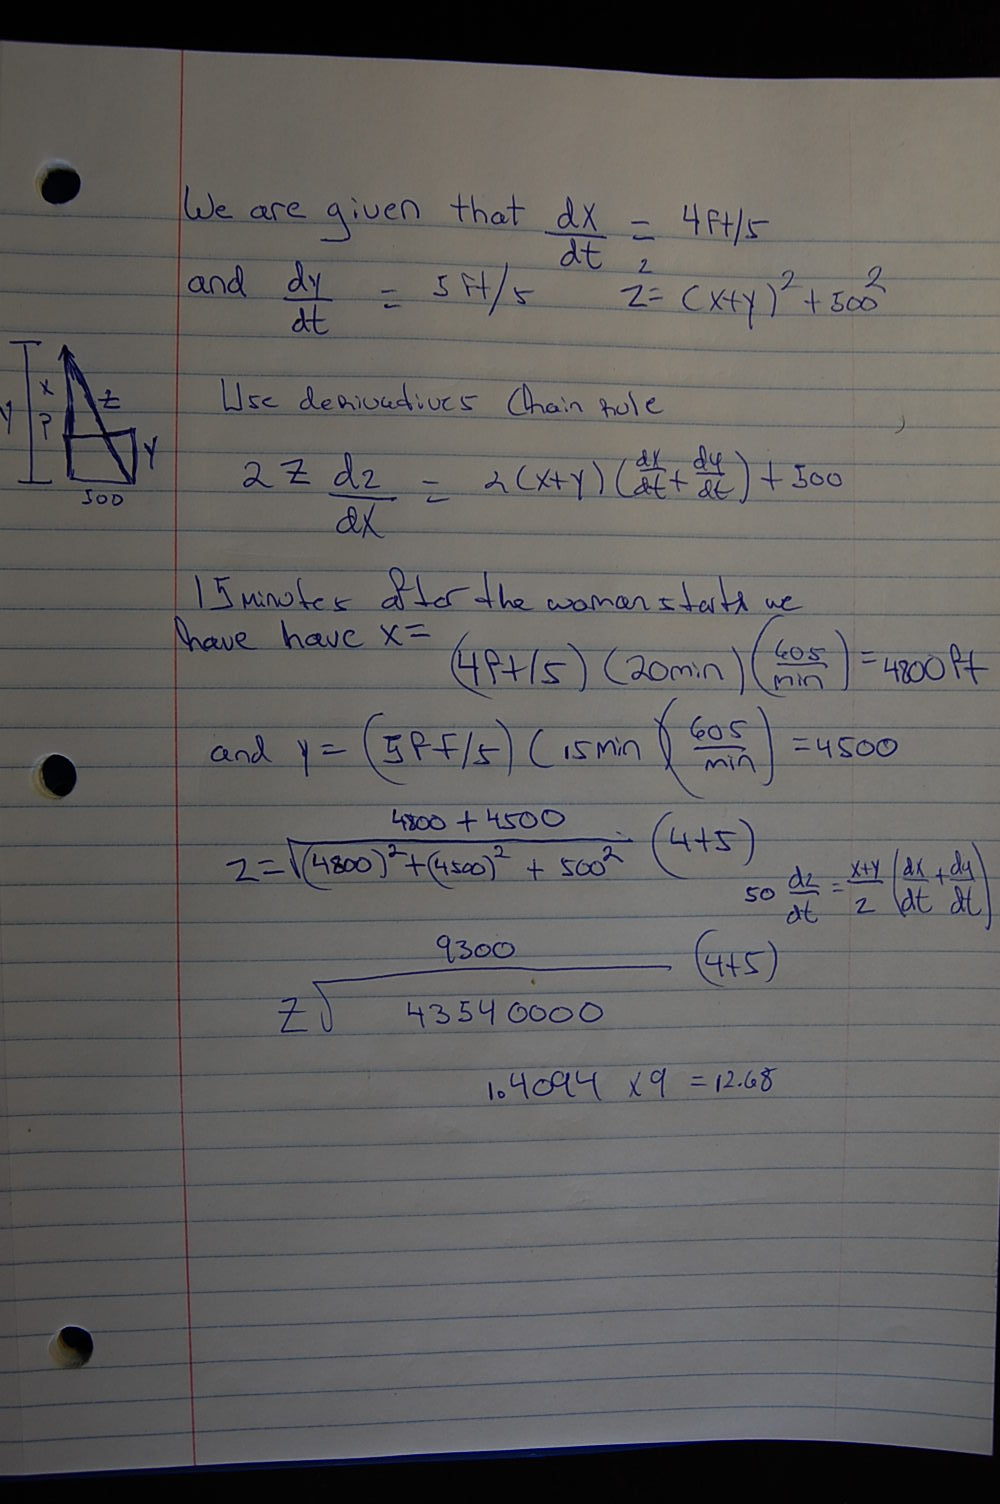 We are given that dx/dt = 4ft/s
and dy/dt = 5ft/s z² = (x+y)² + 500²
x
z
y
?
y
500
Use derivadives Chain rule
2 z dz/dx = 2(x+y)(dx/dt + dy/dt) + 500
15 minutes after the woman starts we
have have x=
(4ft/s) (20min) (60s/min) = 4800ft
and y = (5ft/s) (15min)(60s/min) = 4500
4800 + 4500
z = √(4800)² + (4500)² + 500² (4+5)
so dz/dt = x+y/z (dx/dt + dy/dt)
9300
z √43540000 (4+5)
1.4094 x 9 = 12.68